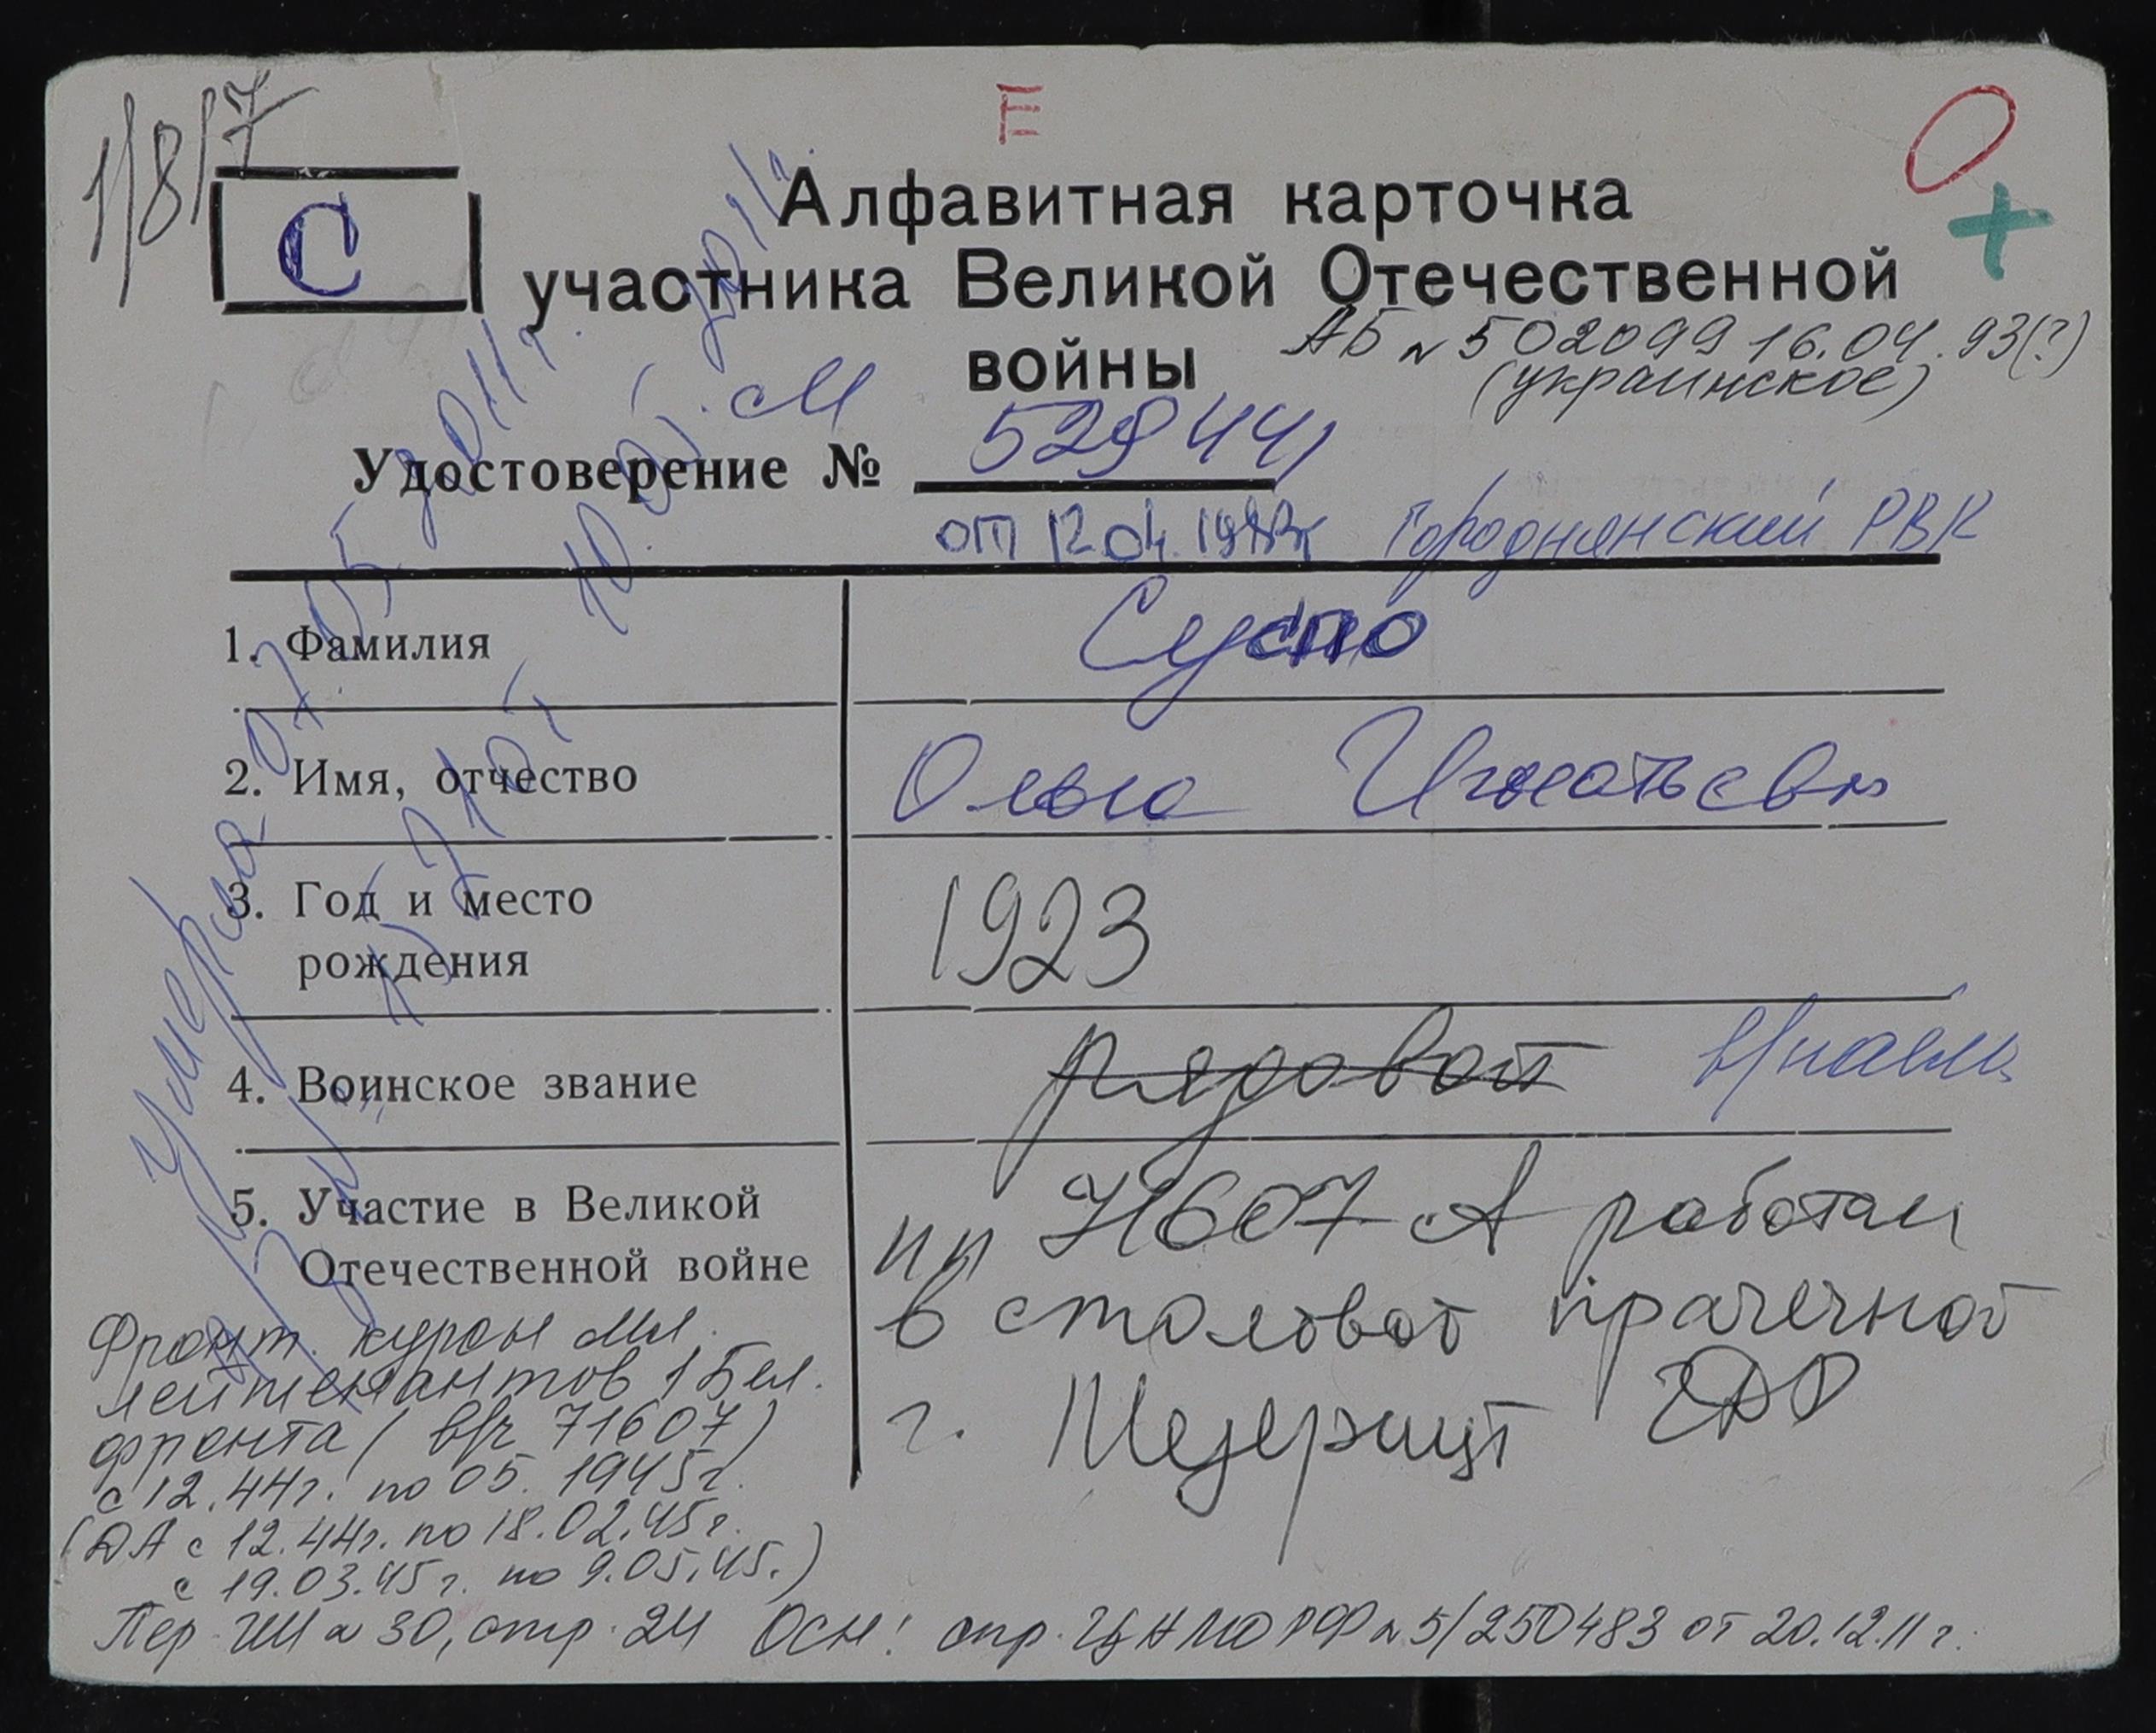 1/8/7
Е
О
+
С
Алфавитная карточка
участника Великой Отечественной
войны
АБ N 502099 16.04.93(?)
(украинское)
Удостоверение №
от 12.04. Городнянский РВК
1. Фамилия
Суспо
2. Имя, отчество
Ольга Игнатьевн
3. Год и место
рождения
1923
4. Воинское звание
рядовой в/наем
5. Участие в Великой
Отечественной войне
пп 71607 А работал
в столовой прачечной
г. Мезерицт ГДР
Фронт. курсы мл.
лейтенантов 1 Бел.
фронта (в/ч 71607)
с 12.44г. по 05.1945г.
(ДА с 12.44г. по 18.02.45г.
с 19.03.45г. по 9.05.45.)
Пер. ГШ N 30, стр. 24 Осн: спр. ЦАМО РФ N 5/250483 от 20.12.11г.
Умерла 07.05.2011г.